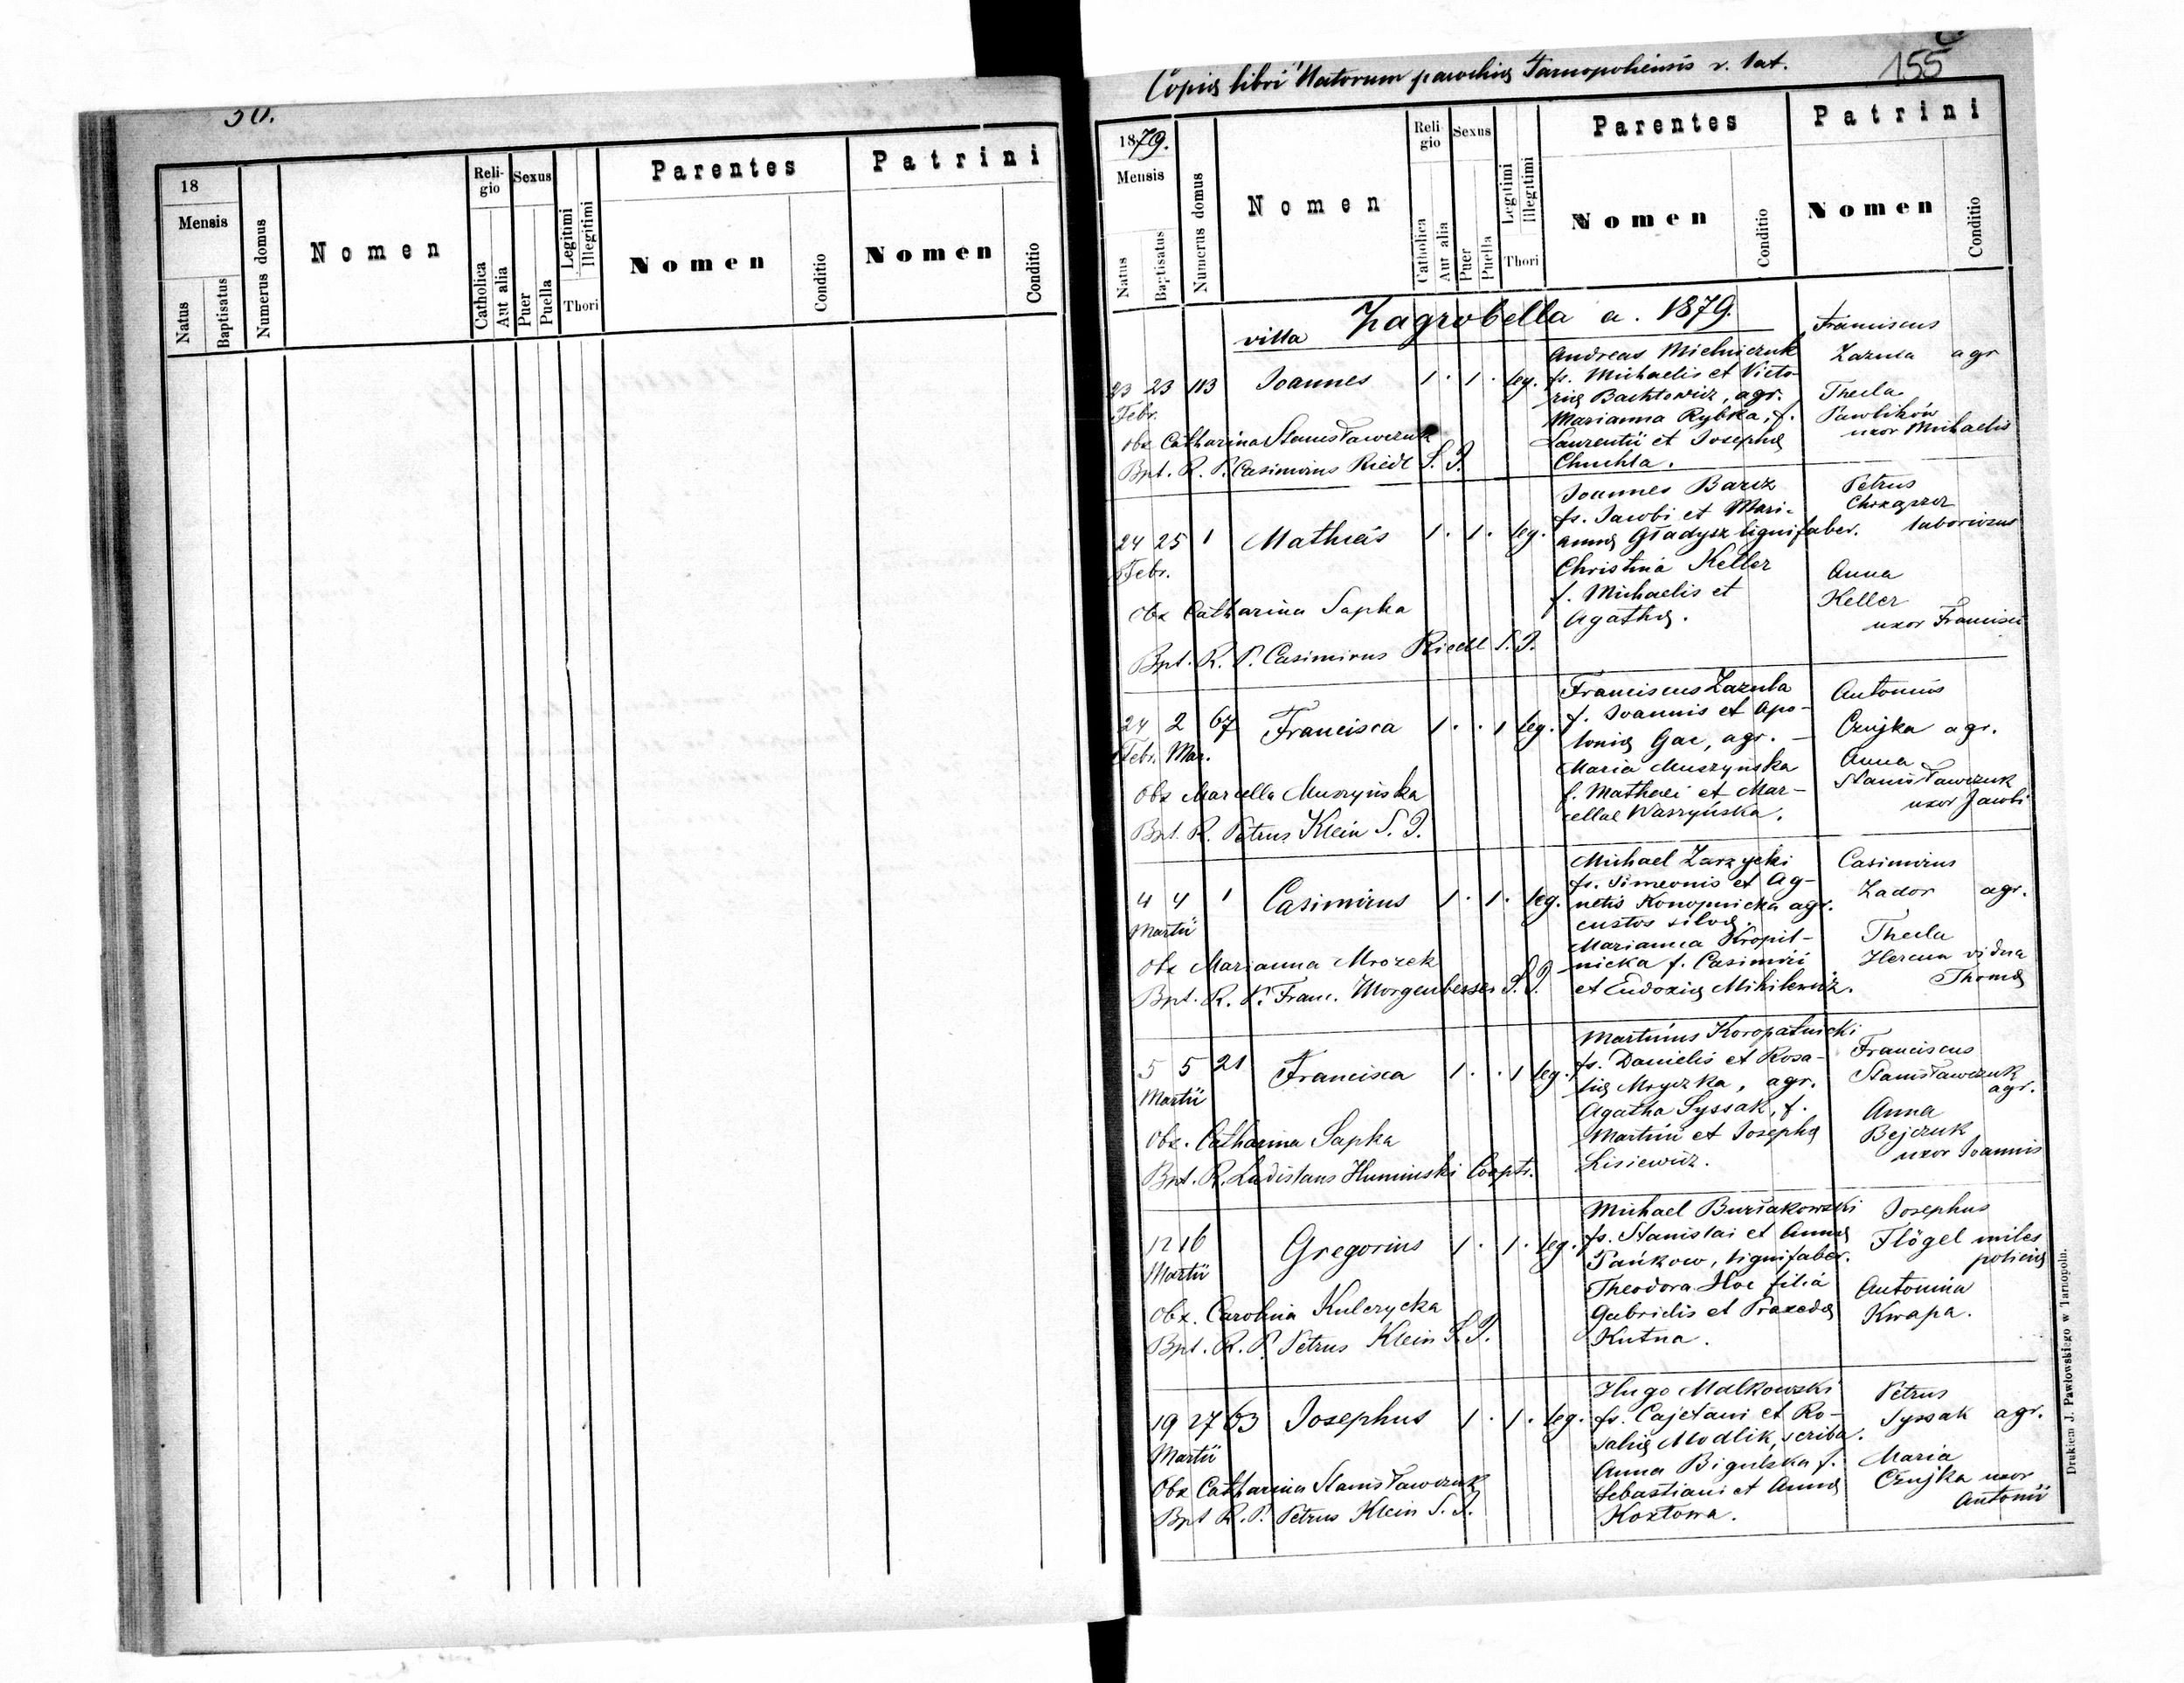 50.
18
Mensis
Natus
Baptisatus
Numerus domus
Nomen
Reli-
gio
Catholica
Aut alia
Sexus
Puer
Puella
Legitimi
Illegitimi
Thori
Parentes
Nomen
Conditio
Patrini
Nomen
Conditio
Copia libri Natorum parochiæ Tarnopoliensis r. lat.
155
1879.
Mensis
Natus
Baptisatus
Numerus domus
Nomen
Reli-
gio
Catholica
Aut alia
Sexus
Puer
Puella
Legitimi
Illegitimi
Thori
Parentes
Nomen
Conditio
Patrini
Nomen
Conditio
villa Zagrobella a. 1879.
23 23 113 Joannes 1 . 1 . leg.
Febr.
Obx Catharina Stanisławczuk
Bpt. R. P. Casimirus Riedl S. J.
Andreas Michniczuk
fs. Michaelis et Victo-
riæ Bachtowicz, agr.
Marianna Rybka, f.
Laurentii et Josephæ
Chuchla.
Franciscus
Zazula agr
Thecla
Pawlików
uxor Michaelis
24 25 1 Mathias 1 . 1 . leg.
Febr.
Obx Catharina Sapka
Bpt. R. P. Casimirus Riedl S. J.
Joannes Barcz
fs. Jacobi et Mari-
annæ Gładysz lignifaber.
Christina Keller
f. Michaelis et
Agathæ.
Petrus
Chrząszcz
laboriosus
Anna
Keller
uxor Francisci
24 2 67 Francisca 1 . . 1 leg.
Febr. Mar.
Obx Marcella Muszyńska
Bpt. R. Petrus Klein S. J.
Franciscus Zazula
f. Joannis et Apo-
loniæ Gac, agr. -
Maria Muszyńska
f. Mathæi et Mar-
cellae Waszyńska.
Antonius
Czujka agr.
Anna
Stanisławczuk
uxor Jacobi
4 4 1 Casimirus 1 . 1 . leg.
Martii
Obx Marianna Mrozek
Bpt. R. P. Franc. Morgenbesser S. J.
Michael Zarzycki
fs. Simeonis et Ag-
netis Konopnicka agr.
custos silvæ.
Marianna Kropil-
nicka f. Casimiri
et Eudoxiæ Mihilewicz.
Casimirus
Zador agr.
Thecla
Hercun vidua
Thomæ
5 5 21 Francisca 1 . . 1 leg.
Martii
Obx. Catharina Sapka
Bpt. R. Ladislaus Humiński Coopts.
Martinus Koropatnicki
fs. Danielis et Rosa-
liæ Mryczka, agr.
Agatha Syssak, f.
Martini et Josephæ
Lisiewicz.
Franciscus
Stanisławczuk
agr.
Anna
Bejczuk
uxor Joannis
12 16 Gregorius 1 . 1 . leg.
Martii
Obx. Carolina Kulczycka
Bpt. R. P. Petrus Klein S. J.
Michael Burłakowski
fs. Stanislai et Annæ
Pańkow, lignifaber.
Theodora Hoc filia
Gabrielis et Praxedæ
Kutna.
Josephus
Flögel miles
policiæ
Antonina
Kwapa.
19 27 63 Josephus 1 . 1 . leg.
Martii
Obx Catharina Stanisławczuk
Bpt R. P. Petrus Klein S. J.
Hugo Malkowski
fs. Cajetani et Ro-
saliæ Modlik, scriba.
Anna Bigulska f.
Sebastiani et Annæ
Kozłowa.
Petrus
Syssak agr.
Maria
Czujka uxor
Antonii
Drukiem J. Pawłowskiego w Tarnopolu.